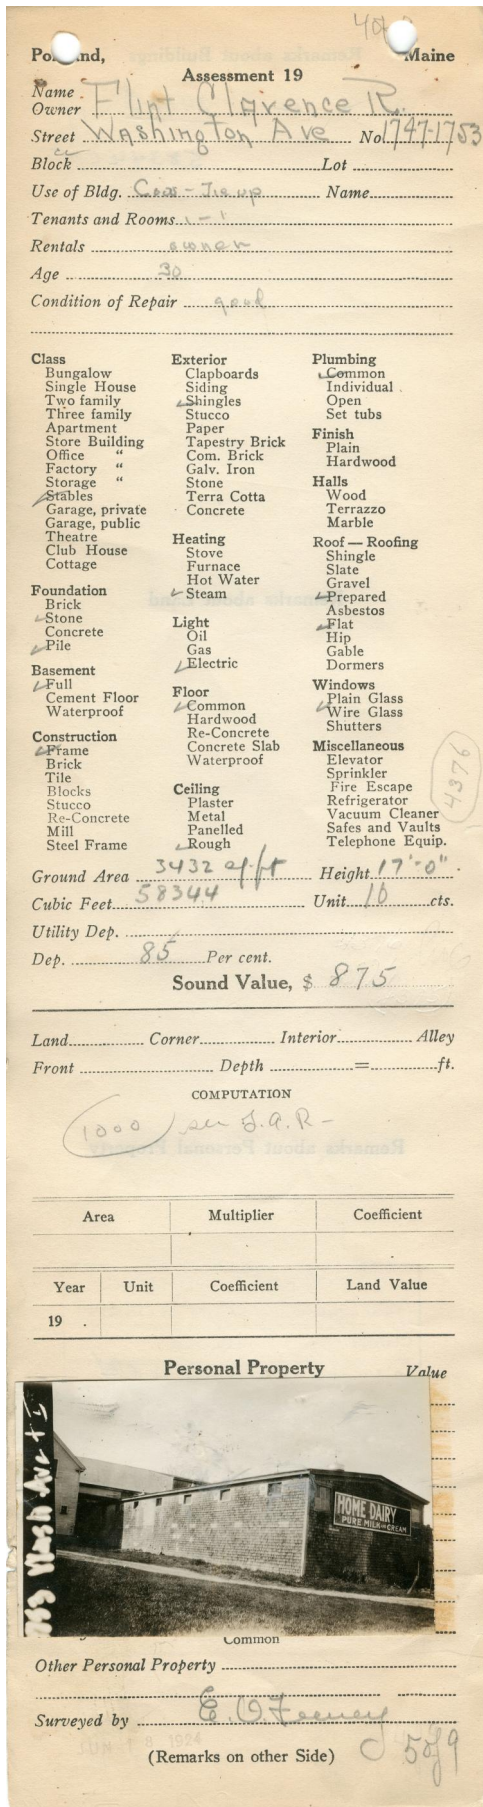 Portland, Maine
Assessment 19
Name
Owner Flint Clarence R.
Street Washington Ave No. 1747-1753
Block Lot
Use of Bldg. Cows - Tie up Name
Tenants and Rooms 1 - 1
Rentals owner
Age 30
Condition of Repair good
Class
Bungalow
Single House
Two family
Three family
Apartment
Store Building
Office "
Factory "
Storage "
Stables
Garage, private
Garage, public
Theatre
Club House
Cottage
Foundation
Brick
Stone
Concrete
Pile
Basement
Full
Cement Floor
Waterproof
Construction
Frame
Brick
Tile
Blocks
Stucco
Re-Concrete
Mill
Steel Frame
Exterior
Clapboards
Siding
Shingles
Stucco
Paper
Tapestry Brick
Com. Brick
Galv. Iron
Stone
Terra Cotta
Concrete
Heating
Stove
Furnace
Hot Water
Steam
Light
Oil
Gas
Electric
Floor
Common
Hardwood
Re-Concrete
Concrete Slab
Waterproof
Ceiling
Plaster
Metal
Panelled
Rough
Plumbing
Common
Individual
Open
Set tubs
Finish
Plain
Hardwood
Halls
Wood
Terrazzo
Marble
Roof — Roofing
Shingle
Slate
Gravel
Prepared
Asbestos
Flat
Hip
Gable
Dormers
Windows
Plain Glass
Wire Glass
Shutters
Miscellaneous
Elevator
Sprinkler
Fire Escape
Refrigerator
Vacuum Cleaner
Safes and Vaults
Telephone Equip.
4376
Ground Area 3432 sq. ft Height 17'-0"
Cubic Feet 58344 Unit 10 cts.
Utility Dep.
Dep. 85 Per cent.
Sound Value, $ 875
Land Corner Interior Alley
Front Depth = ft.
COMPUTATION
1000 J.A.R-
Area Multiplier Coefficient
Year Unit Coefficient Land Value
19 .
Personal Property Value
Wash Ave
HOME DAIRY
PURE MILK AND CREAM
Common
Other Personal Property
Surveyed by E. O. Feeney
JUN 18 1924
(Remarks on other Side)
5 of 9